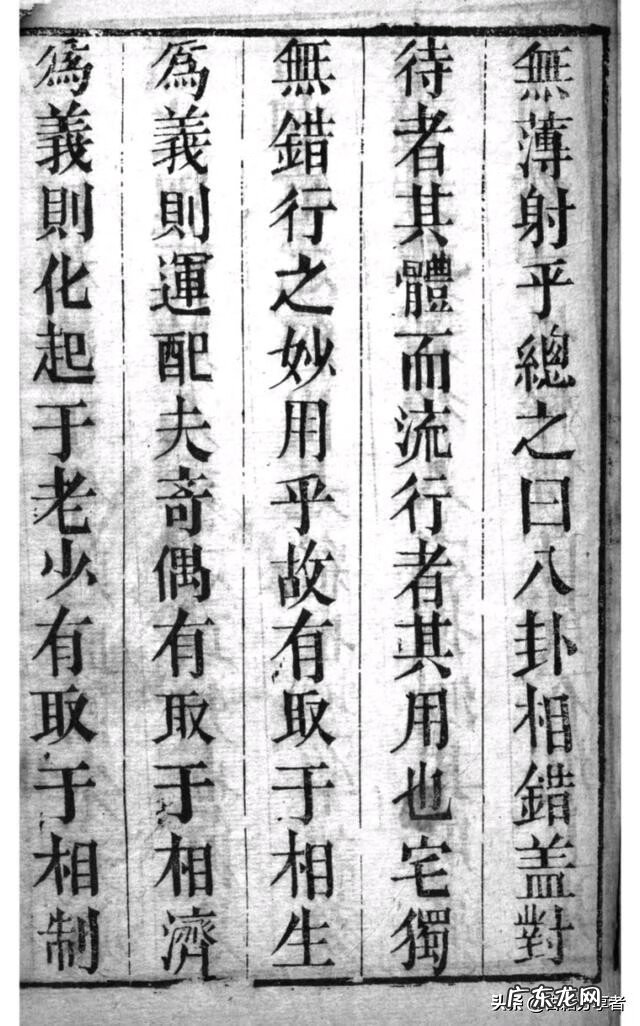 無薄射乎總之曰八卦相錯盖對
待者其體而流行者其用也宅獨
無錯行之妙用乎故有取于相生
為義則運配夫奇偶有取于相濟
為義則化起于老少有取于相制
广东龙网